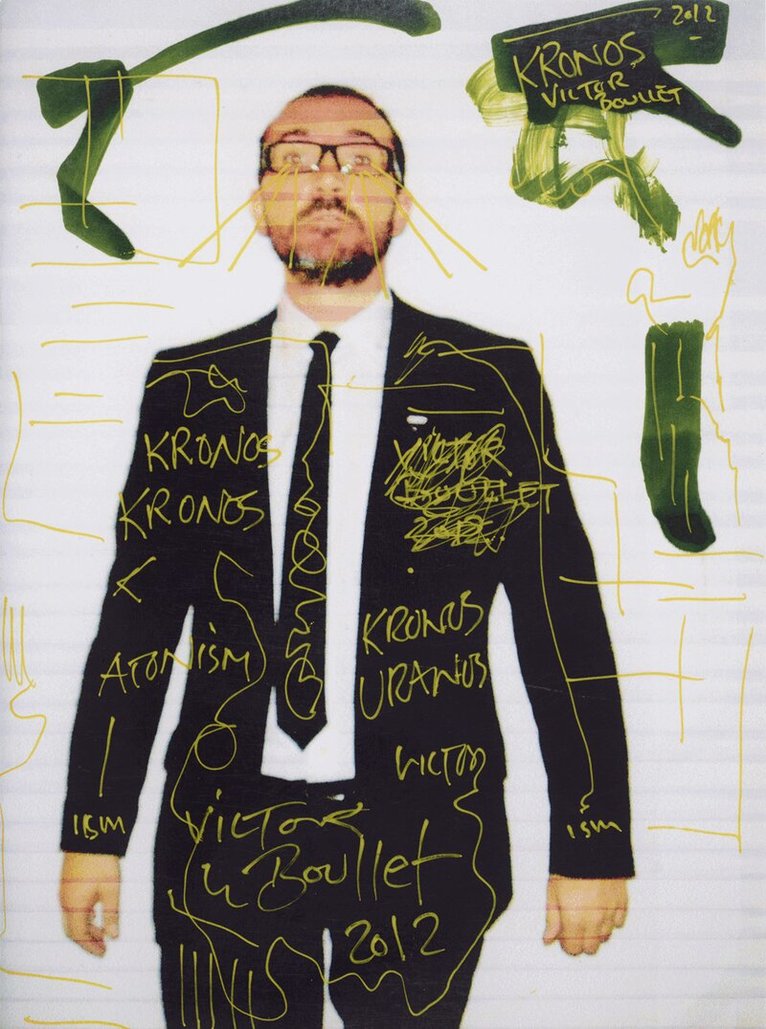 2012
KRONOS
VICTOR
BOULLET
KRONOS
KRONOS
VICTOR
BOULLET
ATONISM
ism
KRONOS
URANOS
VICTOR
ism
VICTOR
Boullet
2012